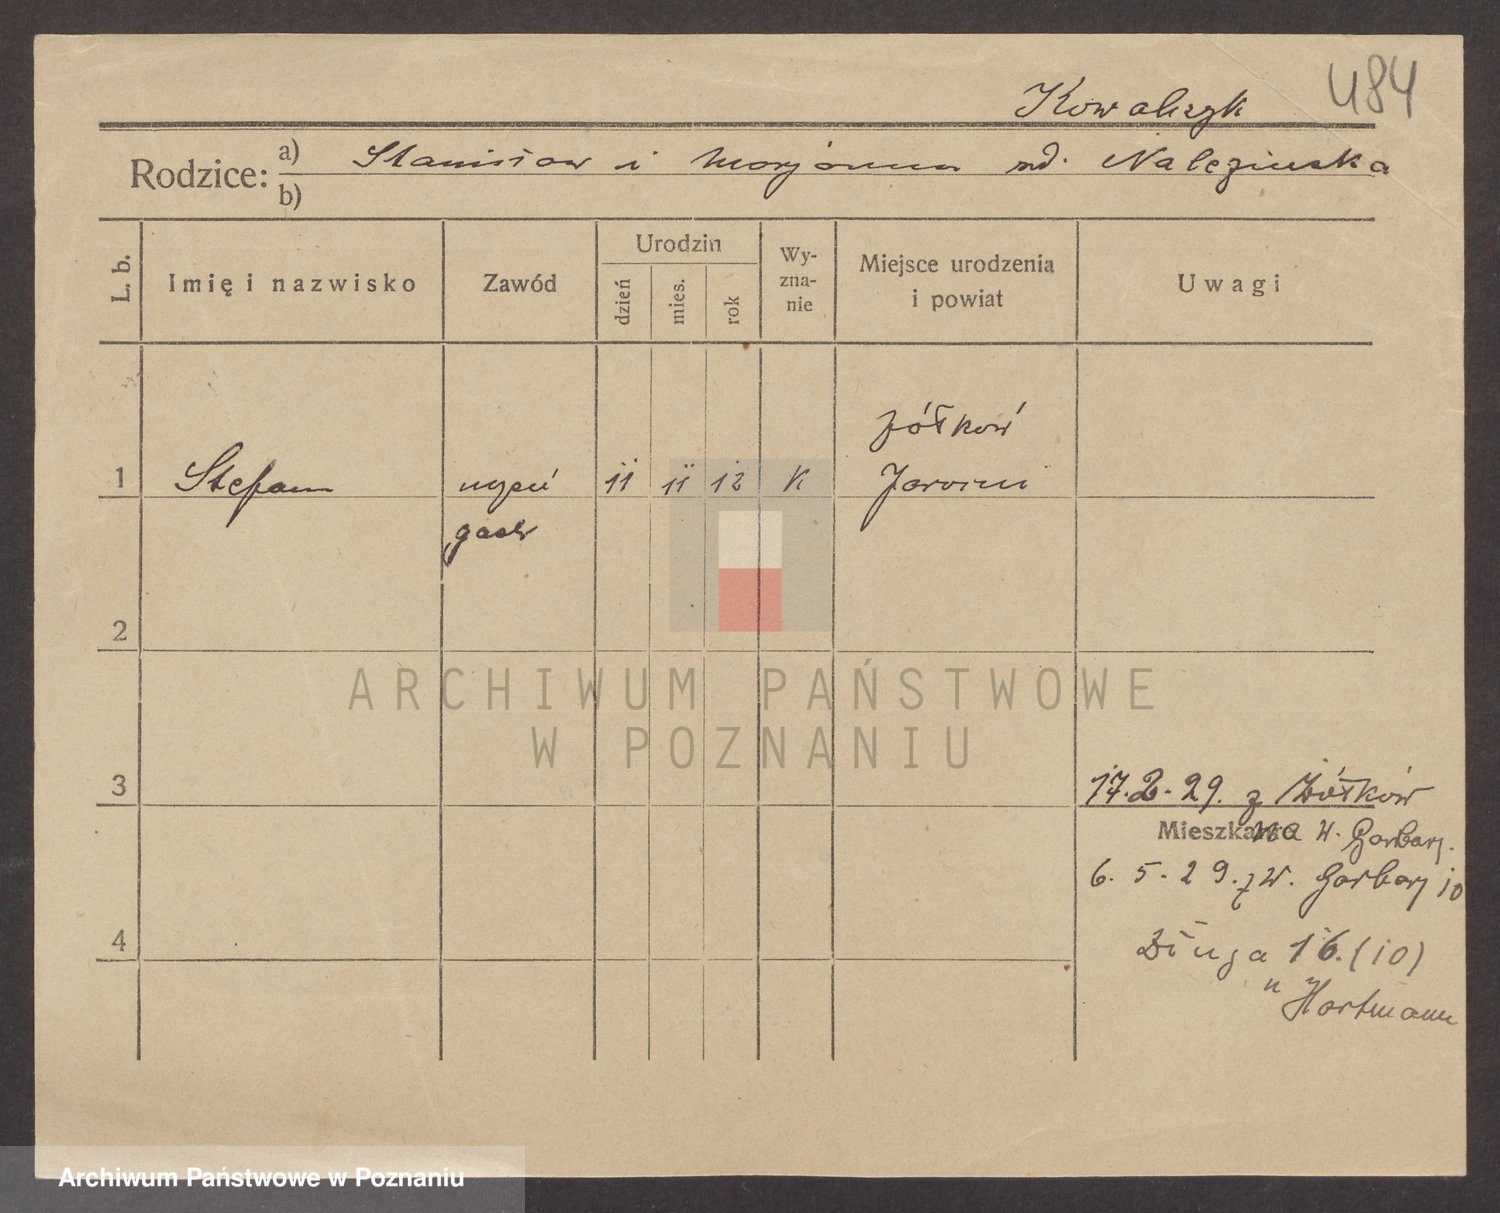 484
Kowalczyk
Rodzice: a) Stanisław i Marjanna zd. Nalezinska
b)
L. b.
Imię i nazwisko
Zawód
Urodzin
dzień
mies.
rok
Wy-
zna-
nie
Miejsce urodzenia
i powiat
Uwagi
Żółków
1 Stefan uczeń 11 11 12 K Jarocin
gastr
2
ARCHIWUM PAŃSTWOWE
W POZNANIU
3
17.2.29. z Żółków
Mieszkanie na W. Garbary.
6.5.29. z W. Garbary 10
4
Długa 16. (10)
u Hartmann
Archiwum Państwowe w Poznaniu